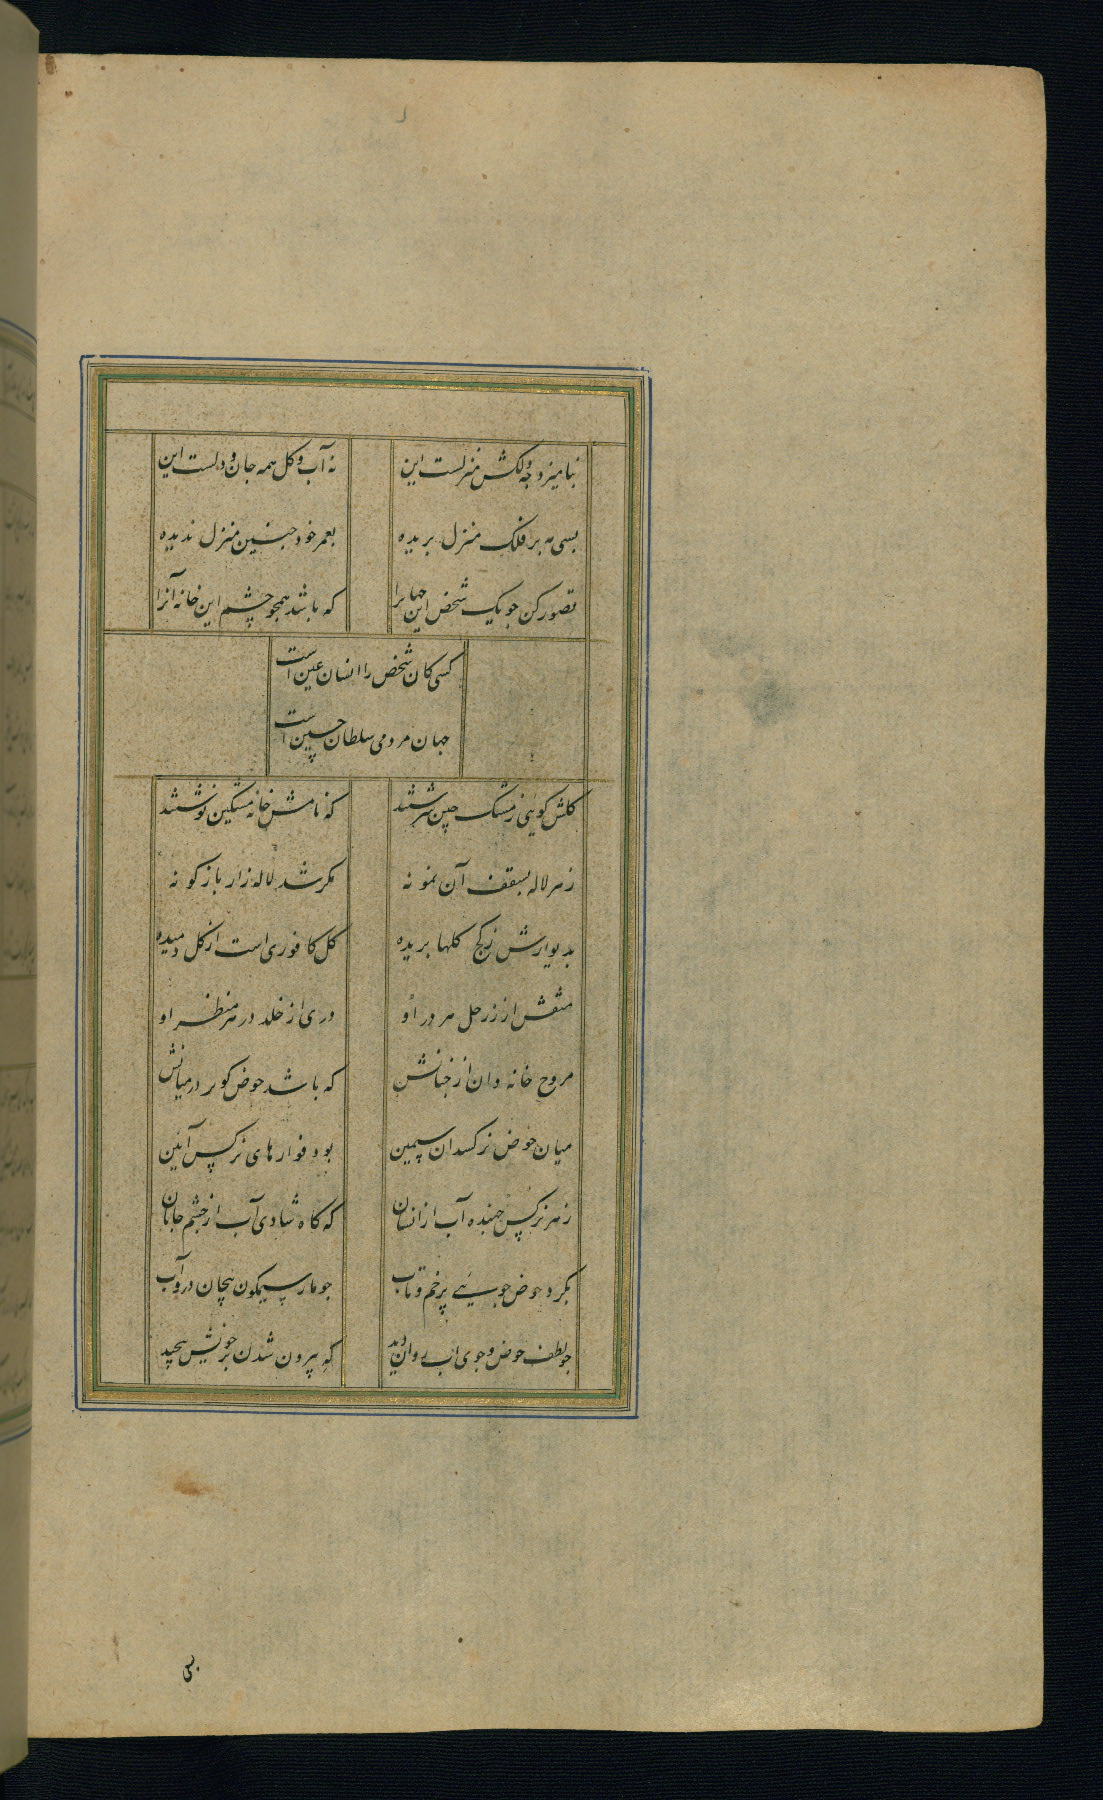 بنامیزد چه دلکش منزلست این نه آب و کل همه جان و دلست این
بسی مه بر فلک منزل بریده بعمر خود چنین منزل ندیده
تصور کن جو یک شخص این جهانرا که باشد همجو چشم این خانه آنرا
کسی کان شخص را انسان عین است
جهان مردمی سلطان حسین است
کلش کویی ز مشک چین سرشتند که نامش خانه مشکین نوشتند
ز هر لاله بسقف آن نمونه مکر شد لاله زار باز کونه
بدیوارش ز کج کلها بریده کل کافوری است از کل دمیده
منقش از زر حل هر در او دری از خلد در هر منظر او
مروح خانه دان از جنانش که باشد حوض کوثر در میانش
میان حوض نرکسدان سیمین بود فوارهای نرکس آئین
ز هر نرکس جهنده آب از انسان که کاه شادی آب از چشم جانان
بکرد حوض جویی پر خم و تاب جو مار سیمکون پیچان در و آب
جو لطف حوض و جوی آب روان دید که بیرون شدن بر خویش پیچید